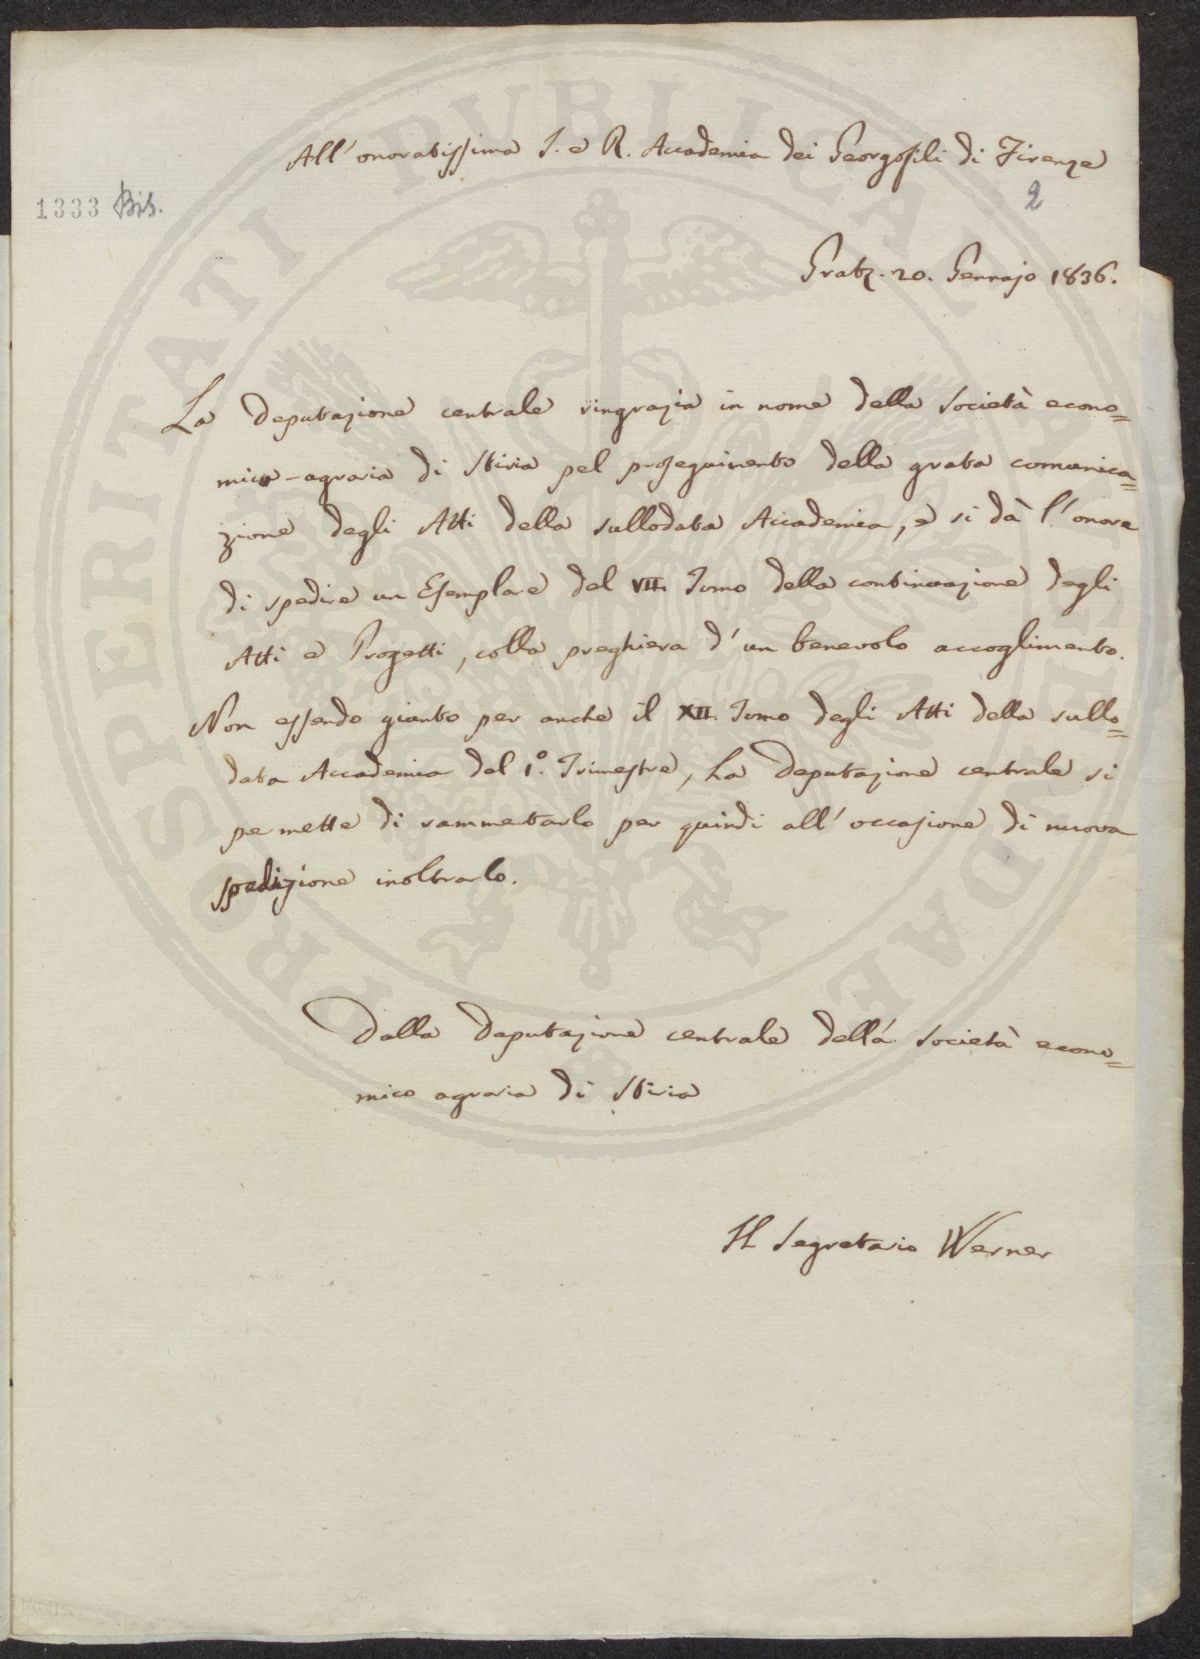 All' onoratissima I. e R. Accademia dei Georgofili di Firenze
2
1333 Bis.
Gratz. 20. Gennajo 1836.
La deputazione centrale ringrazia in nome della Società econo=
mico-agraria di Stiria pel proseguimento della grata comunica=
zione degli Atti della sullodata Accademia, e si dà l'onore
di spedire un Esemplare del VII. Tomo della continuazione degli
Atti e Progetti, colla preghiera d'un benevolo accoglimento.
Non essendo giunto per anche il XII. Tomo degli Atti della sullo=
data Accademia del 1º. Trimestre, la deputazione centrale si
permette di rammentarlo per quindi all'occasione di nuova
spedizione inoltrarlo.
Dalla deputazione centrale della Società econo=
mico agraria di Stiria
Il Segretario Werner
PROSPERITATI PUBLICAE AUGENDAE